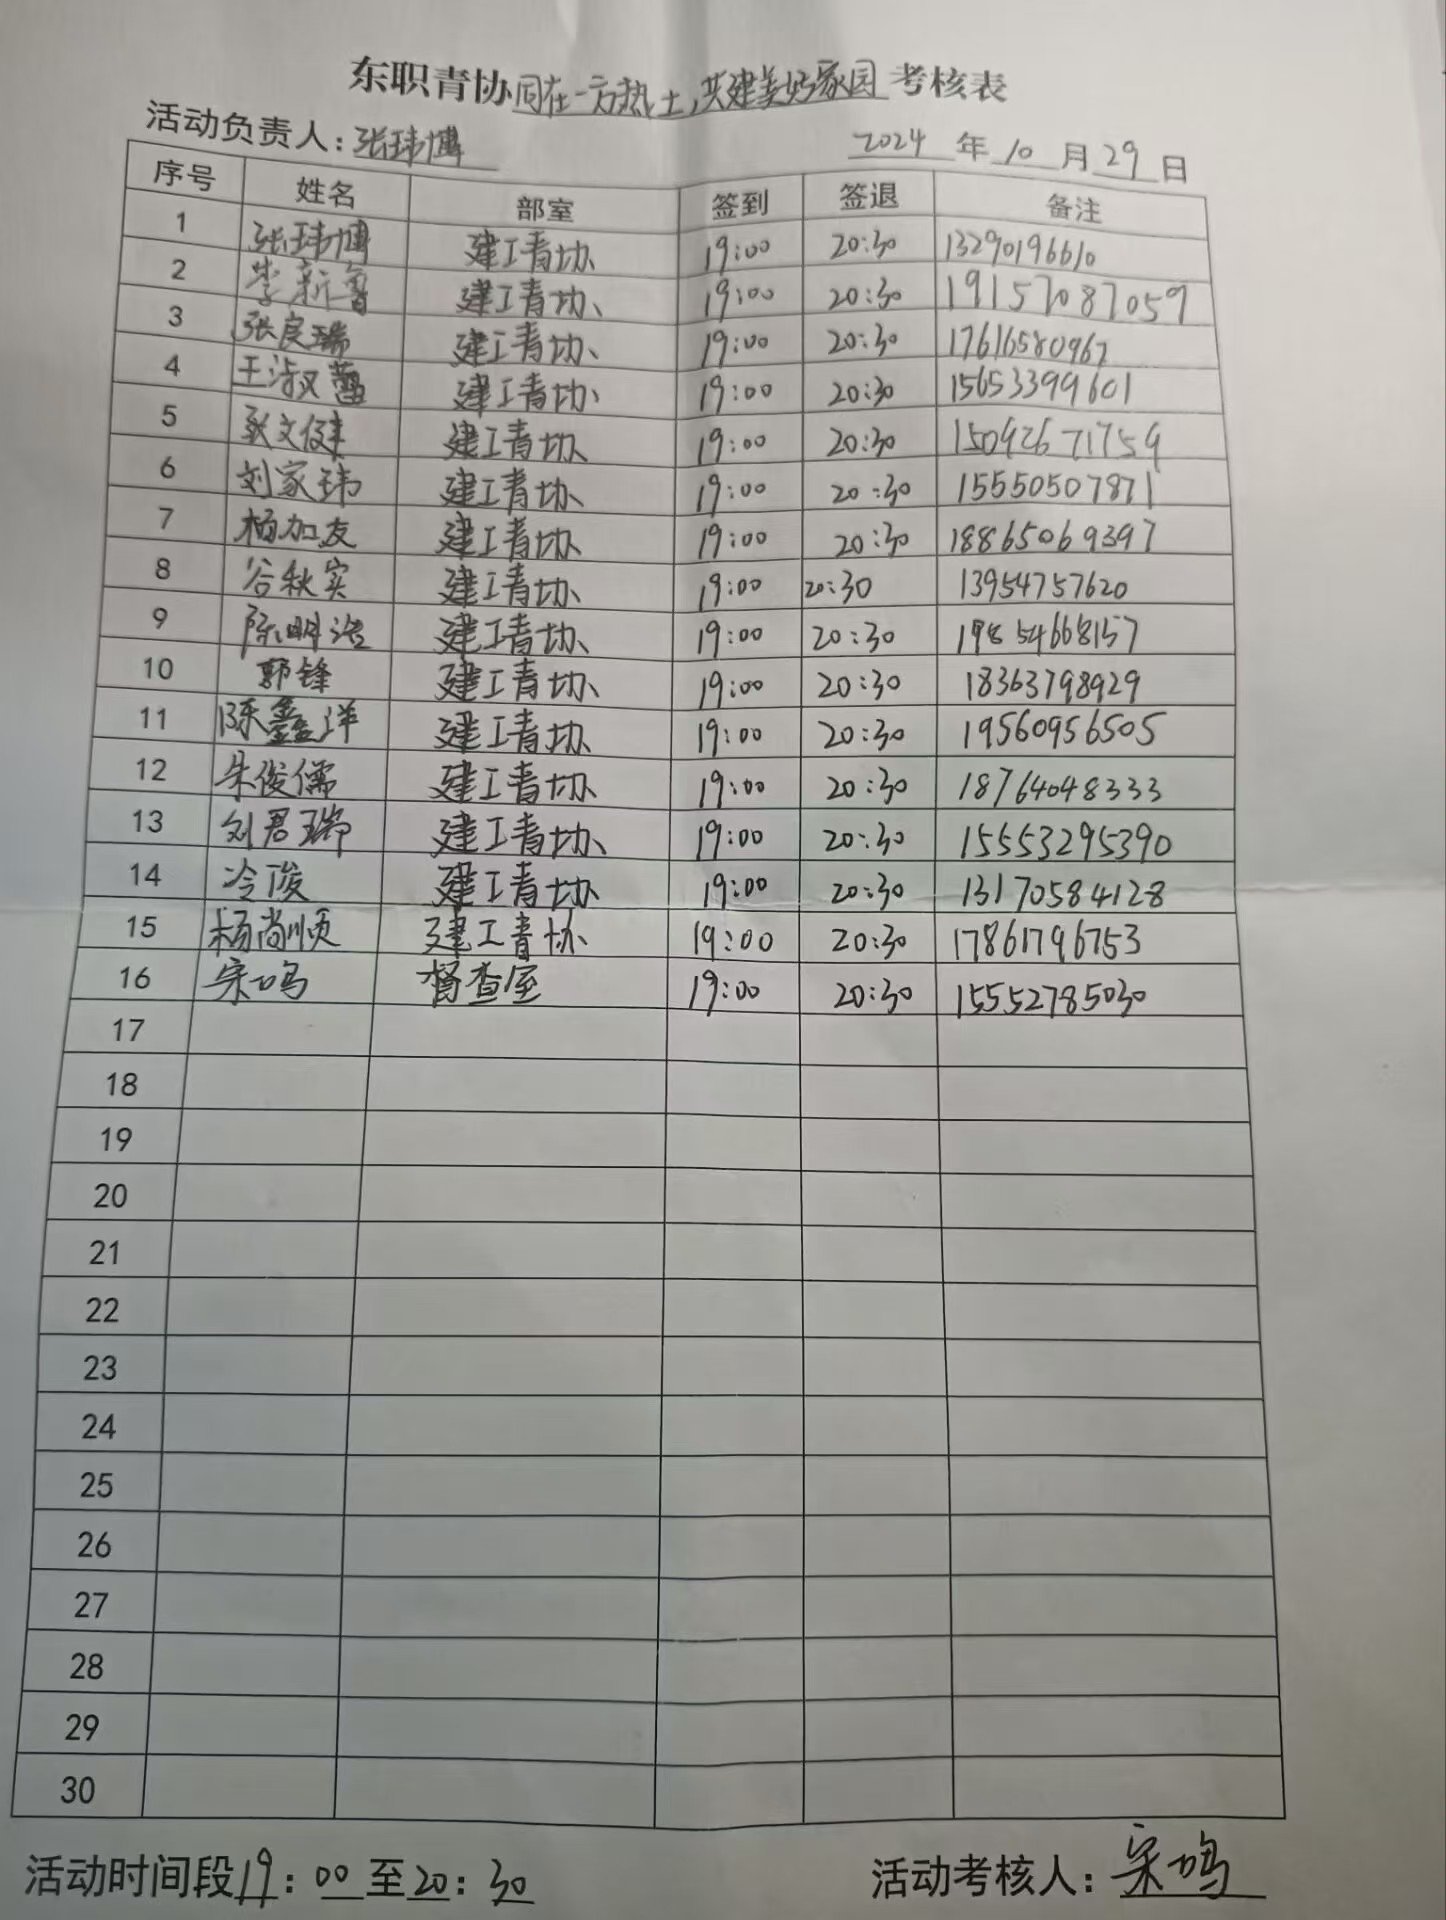 东职青协同在一方热土,共建美好家园考核表
活动负责人:张玮博 2024年10月29日
序号 姓名 部室 签到 签退 备注
1 张玮博 建工青协 19:00 20:30 13290196610
2 李新鲁 建工青协 19:00 20:30 19157087059
3 张良瑞 建工青协 19:00 20:30 17616580967
4 王淑蕾 建工青协 19:00 20:30 15653399601
5 耿文健 建工青协 19:00 20:30 15092671759
6 刘家玮 建工青协 19:00 20:30 15550507871
7 杨加友 建工青协 19:00 20:30 18865069397
8 谷秋实 建工青协 19:00 20:30 13954757620
9 陈明浩 建工青协 19:00 20:30 19854668157
10 郭锋 建工青协 19:00 20:30 18363798929
11 陈鑫洋 建工青协 19:00 20:30 19560956505
12 朱俊儒 建工青协 19:00 20:30 18764048333
13 刘君瑞 建工青协 19:00 20:30 15553295390
14 冷俊 建工青协 19:00 20:30 13170584128
15 杨尚顺 建工青协 19:00 20:30 17861796753
16 宋鸣 督查室 19:00 20:30 15552785030
17
18
19
20
21
22
23
24
25
26
27
28
29
30
活动时间段19:00至20:30 活动考核人:宋鸣